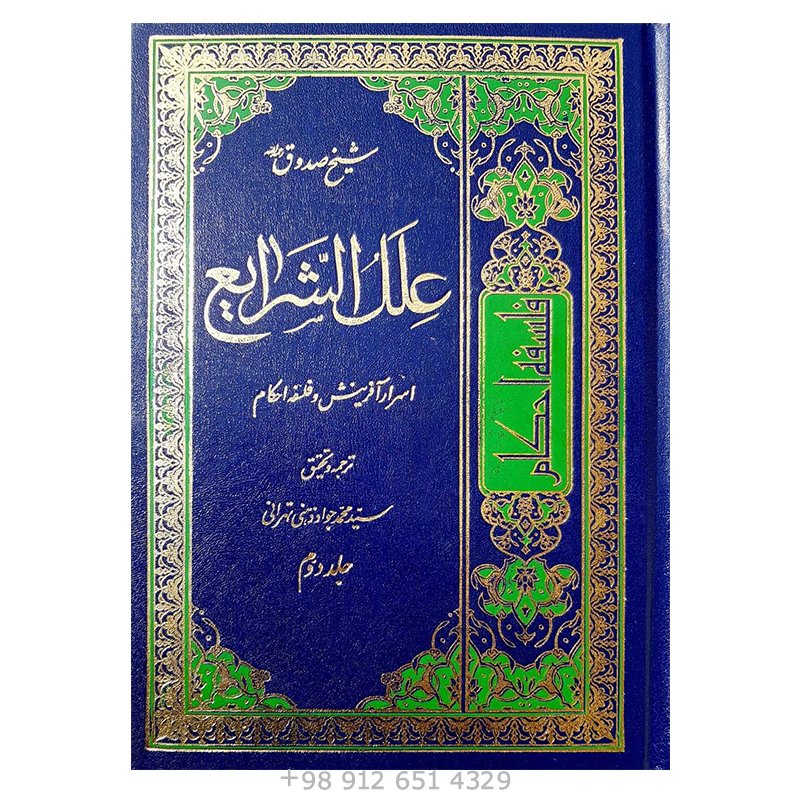 شیخ صدوق
عِلَلُ الشَّرایع
اسرار آفرینش و فلسفه احکام
ترجمه و تحقیق
سید محمد جواد ذهنی تهرانی
جلد دوم
فلسفه احکام
+98 912 651 4329